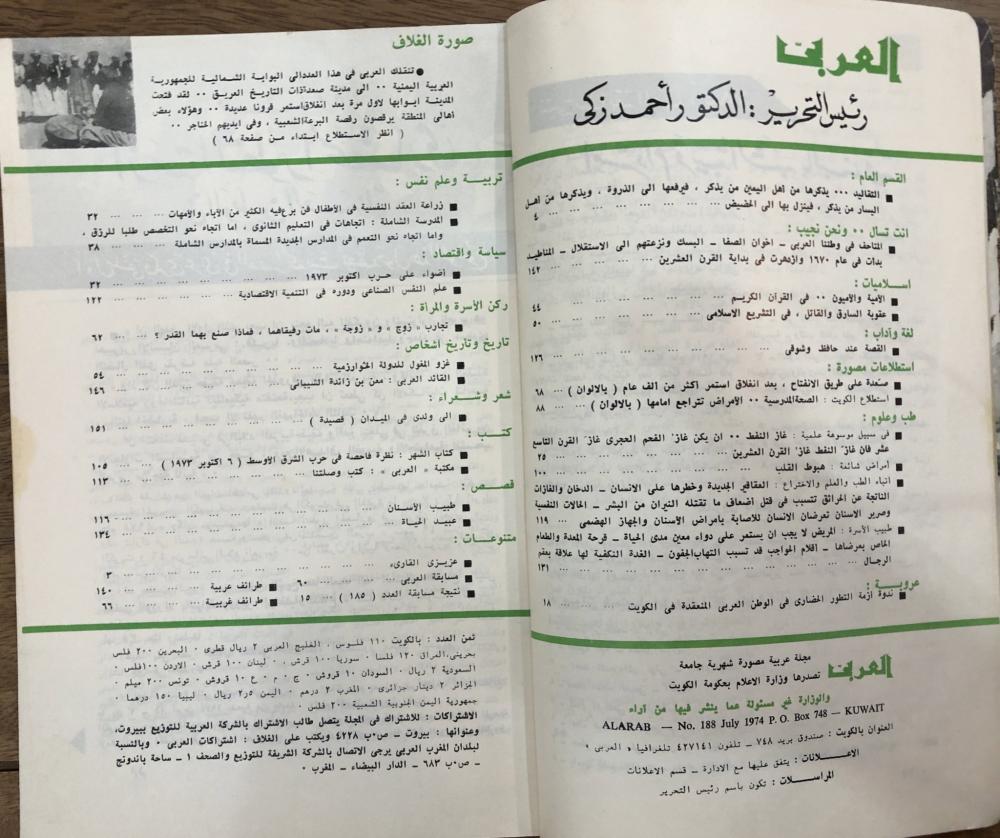 العربي
رئيس التحرير : الدكتور أحمد زكي
القسم العام :
■ التقاليد ٠٠٠ يذكرها من أهل اليمين من يذكر ، فيرفعها الى الذروة ، ويذكرها من أهل
اليسار من يذكر ، فينزل بها الى الحضيض ... ... ... ... ... ... ٤
أنت تسأل ٠٠ ونحن نجيب :
■ المتاحف في وطننا العربي ـ اخوان الصفا ـ البسك ونزعتهم الى الاستقلال ـ المناطيد
بدأت في عام ١٦٧٠ وازدهرت في بداية القرن العشرين ... ... ... ... ١٤٢
اسلاميات :
■ الأمية والأميون ٠٠ في القرآن الكريم ... ... ... ... ... ٤٤
■ عقوبة السارق والقاتل ، في التشريع الاسلامي ... ... ... ... ٥٠
لغة وآداب :
■ القصة عند حافظ وشوقي ... ... ... ... ... ... ١٢٦
استطلاعات مصورة :
■ صعدة على طريق الانفتاح ، بعد انغلاق استمر أكثر من ألف عام ( بالالوان ) ... ٦٨
■ استطلاع الكويت : الصحة المدرسية ٠٠ الأمراض تتراجع امامها ( بالالوان ) ... ٨٨
طب وعلوم :
■ في سبيل موسوعة علمية : غاز النفط ٠٠ ان يكن غاز الفحم الحجري غاز القرن التاسع
عشر فان غاز النفط غاز القرن العشرين ... ... ... ... ... ٢٥
■ أمراض شائعة : هبوط القلب ... ... ... ... ... ١٠٠
■ أنباء الطب والعلم والاختراع : العقاقير الجديدة وخطرها على الانسان ـ الدخان والغازات
الناتجة عن الحرائق تتسبب في قتل أضعاف ما تقتله النيران من البشر ـ الحالات النفسية
وصرير الاسنان تعرضان الانسان للاصابة بامراض الأسنان والجهاز الهضمي ... ١١٩
■ طبيب الأسرة : المريض لا يجب ان يستمر على دواء معين مدى الحياة ـ قرحة المعدة والطعام
الخاص بمرضاها ـ أقلام الحواجب قد تسبب التهاب الجفون ـ الغدة النكفية لها علاقة بعقم
الرجال ... ... ... ... ... ... ... ١٣١
عروبة :
■ ندوة أزمة التطور الحضاري في الوطن العربي المنعقدة في الكويت ... ... ... ١٨
العربي
مجلة عربية مصورة شهرية جامعة
تصدرها وزارة الاعلام بحكومة الكويت
والوزارة غير مسئولة عما ينشر فيها من آراء
ALARAB — No. 188 July 1974 P. O. Box 748 — KUWAIT
العنوان بالكويت : صندوق بريد ٧٤٨ ـ تلفون ٤٢٧١٤١ تلغرافيا « العربي »
الاعــلانات : يتفق عليها مع الادارة ـ قسم الاعلانات
المراسلات : تكون باسم رئيس التحرير
صورة الغلاف
● تنقلك العربي في هذا العدد الى البوابة الشمالية للجمهورية
العربية اليمنية ٠٠ الى مدينة صعدة ذات التاريخ العريق ٠٠ لقد فتحت
المدينة ابوابها لاول مرة بعد انغلاق استمر قرونا عديدة ٠٠ وهؤلاء بعض
أهالي المنطقة يرقصون رقصة البرعة الشعبية ، وفي ايديهم الخناجر ٠٠
( انظر الاستطلاع ابتداء من صفحة ٦٨ )
تربية وعلم نفس :
■ زراعة العقد النفسية في الأطفال فن برع فيه الكثير من الآباء والأمهات ... ... ٣٢
■ المدرسة الشاملة : اتجاهات في التعليم الثانوي ، اما اتجاه نحو التخصص طلبا للرزق ،
واما اتجاه نحو التعمم في المدارس الجديدة المسماة بالمدارس الشاملة ... ... ٣٨
سياسة واقتصاد :
■ أضواء على حرب اكتوبر ١٩٧٣ ... ... ... ... ... ٣٢
■ علم النفس الصناعي ودوره في التنمية الاقتصادية ... ... ... ... ١٢٢
ركن الأسرة والمرأة :
■ تجارب « زوج » و « زوجة » ، مات رفيقاهما ، فماذا صنع بهما القدر ؟ ... ... ٦٢
تاريخ وتاريخ أشخاص :
■ غزو المغول للدولة الخوارزمية ... ... ... ... ... ٥٤
■ القائد العربي : معن بن زائدة الشيباني ... ... ... ... ١٤٦
شعر وشعراء :
■ الى ولدي في الميدان ( قصيدة ) ... ... ... ... ... ١٥١
كتب :
■ كتاب الشهر : نظرة فاحصة في حرب الشرق الأوسط ( ٦ اكتوبر ١٩٧٣ ) ... ... ١٠٥
■ مكتبة « العربي » : كتب وصلتنا ... ... ... ... ... ١١٣
قصص :
■ طبيب الأسنان ... ... ... ... ... ... ١١٦
■ عبيد الحياة ... ... ... ... ... ... ١٣٤
متنوعات :
■ عزيزي القارىء ... ... ... ... ... ... ٣
■ مسابقة العربي ... ... ٦٠ ■ طرائف عربية ... ... ... ١٤٠
■ نتيجة مسابقة العدد ( ١٨٥ ) ... ١٥ ■ طرائف غربية ... ... ... ٦٦
ثمن العدد : بالكويت ١١٠ فلوس ، الخليج العربي ٢ ريال قطري ، البحرين ٢٠٠ فلس
بحريني ، العراق ١٢٠ فلسا ، سوريا ١٠٠ قرش ، لبنان ١٠٠ قرش ، الاردن ١٠٠ فلس ،
السعودية ٢ ريال ، السودان ١٠ قروش ، ج ٠ م ٠ ع ١٠ قروش ، تونس ٢٠٠ مليم ،
الجزائر ٢ دينار جزائري ، المغرب ٢ درهم ، اليمن ٢٫٥ ريال ، ليبيا ١٥٠ درهما ،
جمهورية اليمن الجنوبية الشعبية ٢٠٠ فلس ٠
الاشتراكات : للاشتراك في المجلة يتصل طالب الاشتراك بالشركة العربية للتوزيع ببيروت،
وعنوانها : بيروت ـ ص٠ب ٤٢٢٨ ويكتب على الغلاف : اشتراكات العربي ، وبالنسبة
لبلدان المغرب العربي يرجى الاتصال بالشركة الشريفة للتوزيع والصحف ١ ـ ساحة باندونج
ـ ص٠ب ٦٨٣ ـ الدار البيضاء ـ المغرب ٠